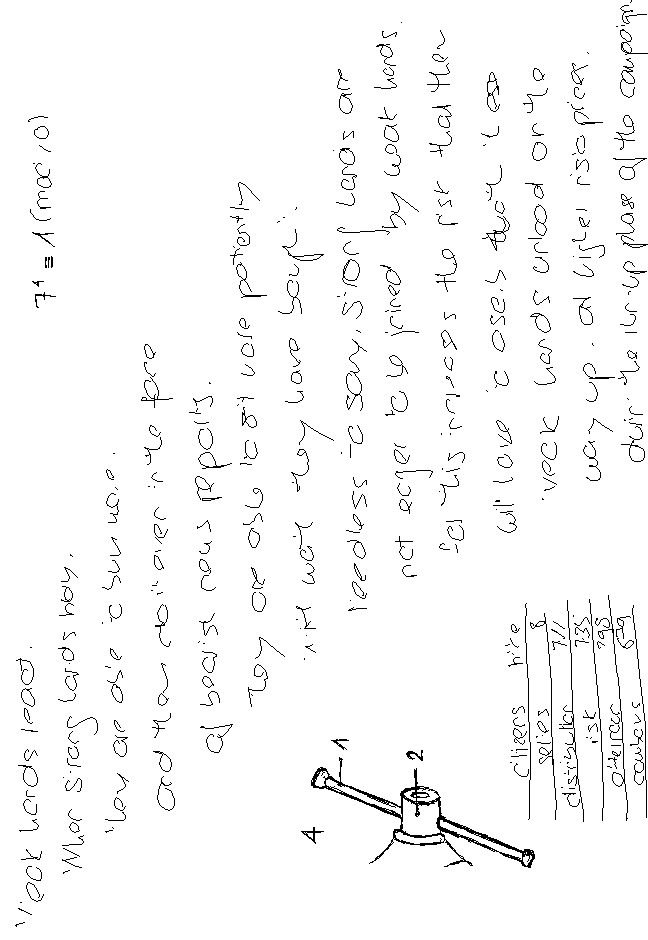 Weak hands react.
When strong hands buy,
They are able to buy more.
and then do it over in the face
of bearish news reports.
They are able to sit more patiently
with what they have bough.
needless to say, strong hands are
not eager to be joined by weak hands.
for this increases the risk that they
will have to that
weak hands unload on the
way up. at higher prices.
during the run-up phase of the campaign
7⁴ ≡ 1 (mod 10)
4
1
2
citizens
series 8
distribution 711
risk 735
798
cowboys 649